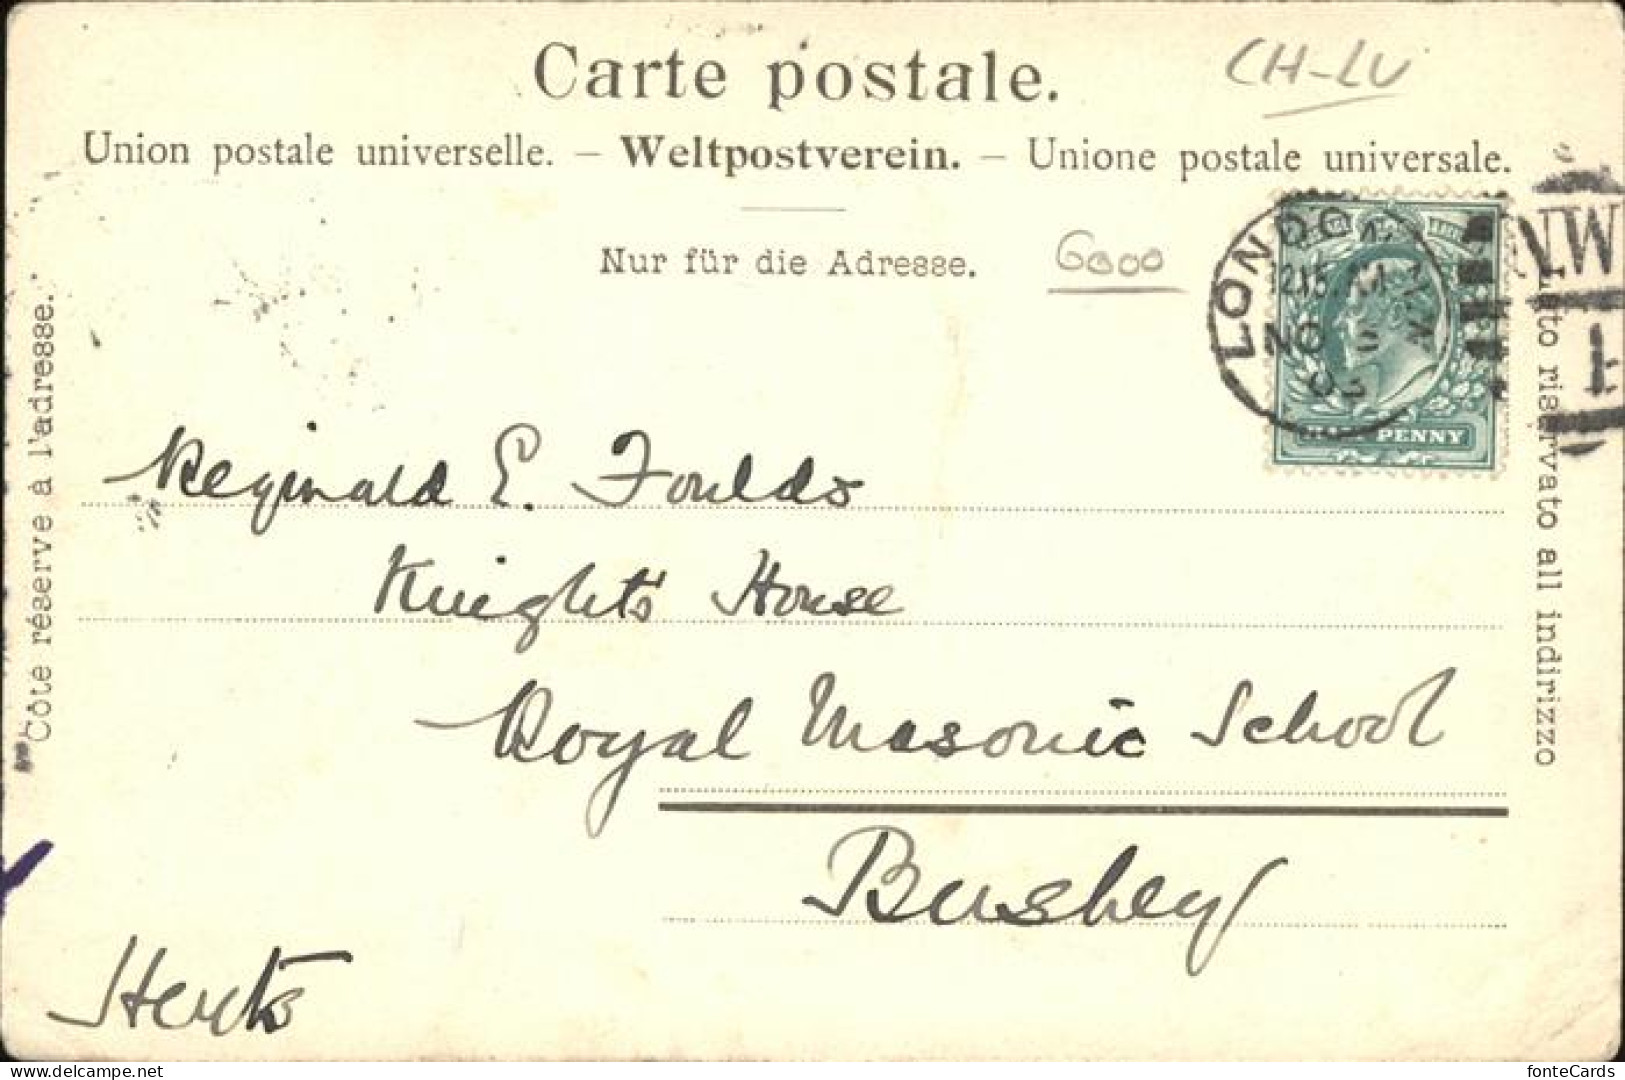 Carte postale.
CH-LU
Union postale universelle. — Weltpostverein. — Unione postale universale.
Nur für die Adresse.
6000
LONDON
12.15 AM
NO
03
HALF PENNY
1
Côté réservé à l'adresse.
Lato riservato all indirizzo
Reginald E. Foulds
Knights House
Royal Masonic School
Bushey
Herts
delcampe.net
fonteCards